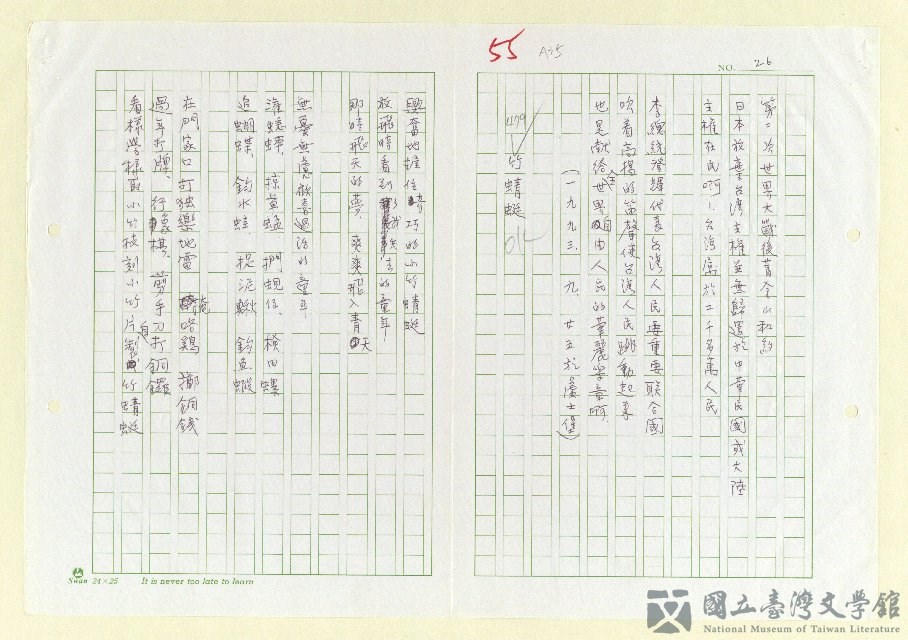 55
NO. 26
第二次世界大戰後舊金山和約
日本放棄台灣主權並無歸還於中華民國或大陸
主權在民啊！台灣屬於二千多萬人民
李總統登輝代表台灣人民要重要聯合國
吹着高揚的笛聲使台灣人民跳動起來
也是獻給全世界自由人民的華麗學章啊。
（一九九三、九、廿五於
竹蜻蜓
OK
興奮地握住精巧的小竹蜻蜓
放飛時看到我失去的童年！
那時飛天的夢，爽爽飛入青天
無憂無慮歡喜過活的童年
追蝴蝶，釣水蛙，捉泥鰍，釣魚蝦
在門家口打独樂地雷咯鷄，擲銅錢
過年打牌，行象棋，剪手刀打銅鑼
看樣學樣取小竹枝刻小竹片自製竹蜻蜓
Swan 24×25 It is never too late to learn
國立臺灣文學館
National Museum of Taiwan Literature